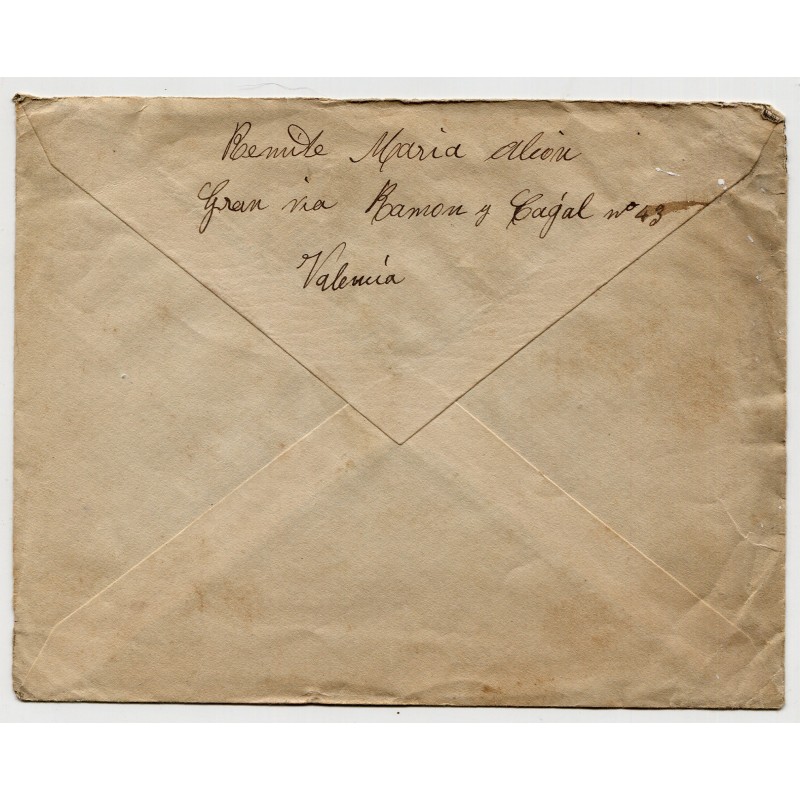 Remite Maria Alcón
Gran via Ramon y Cagál nº 43
Valencia